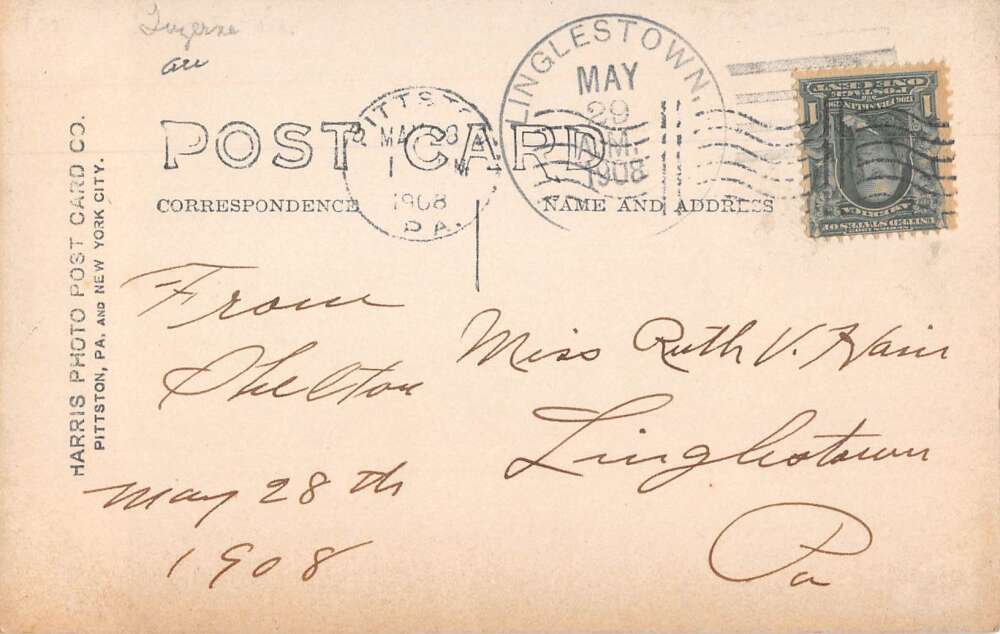 Luzerne
au
LINGLESTOWN,
MAY
29
A.M.
1908
PITTSTON
MAY 28
M
1908
PA.
POST CARD
CORRESPONDENCE
NAME AND ADDRESS
HARRIS PHOTO POST CARD CO.
PITTSTON, PA. AND NEW YORK CITY.
1 1
ONE CENT
POSTAGE
FRANKLIN
SERIES 1902
UNITED STATES OF
AMERICA
From
Shelton
May 28th
1908
Miss Ruth V. Hain
Linglestown
Pa